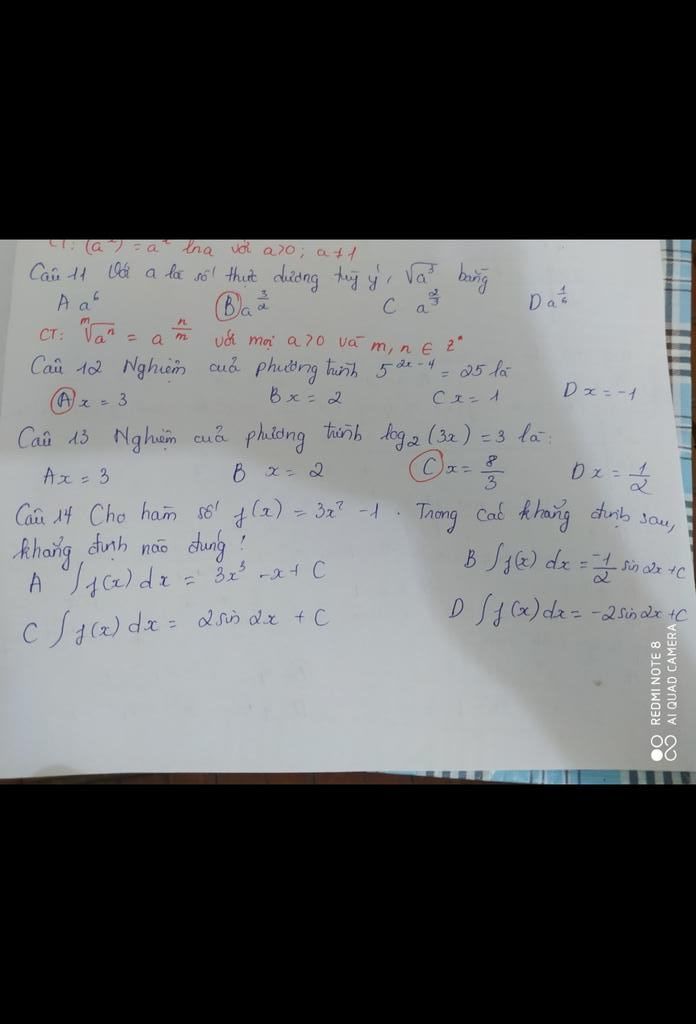 CT: (aˣ)' = aˣ lna với a>0; a≠1
Câu 11 Với a là số thực dương tuỳ ý, √a³ bằng
A a⁶ B a^(3/2) C a^(2/3) D a^(1/6)
CT: ᵐ√aⁿ = a^(n/m) với mọi a>0 và m, n ∈ Z*
Câu 12 Nghiệm của phương trình 5^(2x-4) = 25 là
A x = 3 B x = 2 C x = 1 D x = -1
Câu 13 Nghiệm của phương trình log₂(3x) = 3 là:
A x = 3 B x = 2 C x = 8/3 D x = 1/2
Câu 14 Cho hàm số f(x) = 3x² -1. Trong các khẳng định sau,
khẳng định nào đúng?
A ∫f(x)dx = 3x³ -x + C B ∫f(x) dx = -1/2 sin 2x + C
C ∫f(x) dx = 2sin 2x + C D ∫f(x)dx = -2sin2x +C
REDMI NOTE 8
AI QUAD CAMERA